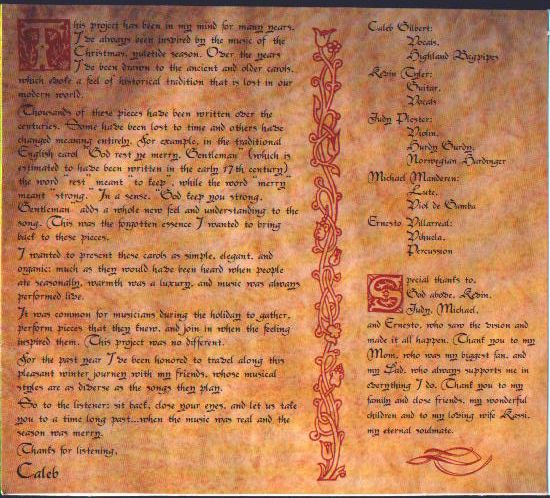 This project has been in my mind for many years.
I've always been inspired by the music of the
Christmas, yuletide season. Over the years
I've been drawn to the ancient and older carols,
which evoke a feel of historical tradition that is lost in our
modern world.
Thousands of these pieces have been written over the
centuries. Some have been lost to time and others have
changed meaning entirely. For example, in the traditional
English carol "God rest ye merry, Gentleman" (which is
estimated to have been written in the early 17th century)
the word "rest" meant "to keep", while the word "merry"
meant "strong." In a sense, "God keep you strong,
Gentleman" adds a whole new feel and understanding to the
song. This was the forgotten essence I wanted to bring
back to these pieces.
I wanted to present these carols as simple, elegant, and
organic; much as they would have been heard when people
ate seasonally, warmth was a luxury, and music was always
performed live.
It was common for musicians during the holiday to gather,
perform pieces that they knew, and join in when the feeling
inspired them. This project was no different.
For the past year I've been honored to travel along this
pleasant winter journey with my friends, whose musical
styles are as diverse as the songs they play.
So to the listener: sit back, close your eyes, and let us take
you to a time long past...when the music was real and the
season was merry.
Thanks for listening,
Caleb
Caleb Gilbert:
Vocals,
Highland Bagpipes
Kevin Tyler:
Guitar,
Vocals
Judy Plester:
Violin,
Hurdy Gurdy,
Norwegian Hardinger
Michael Manderen:
Lute,
Viol de Gamba
Ernesto Villarreal:
Vihuela,
Percussion
Special thanks to,
God above, Kevin,
Judy, Michael,
and Ernesto, who saw the vision and
made it all happen. Thank you to my
Mom, who was my biggest fan, and
my Dad, who always supports me in
everything I do. Thank you to my
family and close friends, my wonderful
children and to my loving wife Kassi,
my eternal soulmate.